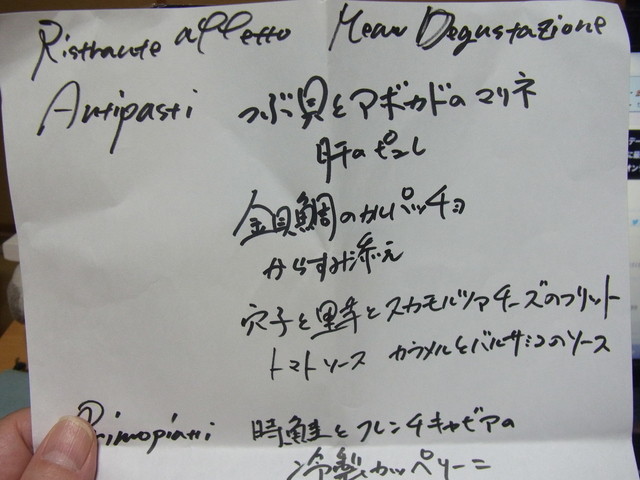 Ristrante affetto Menu Degustazione
Antipasti つぶ貝とアボカドのマリネ
肝のピュレ
金目鯛のカルパッチョ
からすみ添え
穴子と黒米とスカモルツァチーズのフリット
トマトソース カラメルとバルサミコのソース
Primopiatti 時鮭とフレンチキャビアの
冷製カッペリーニ